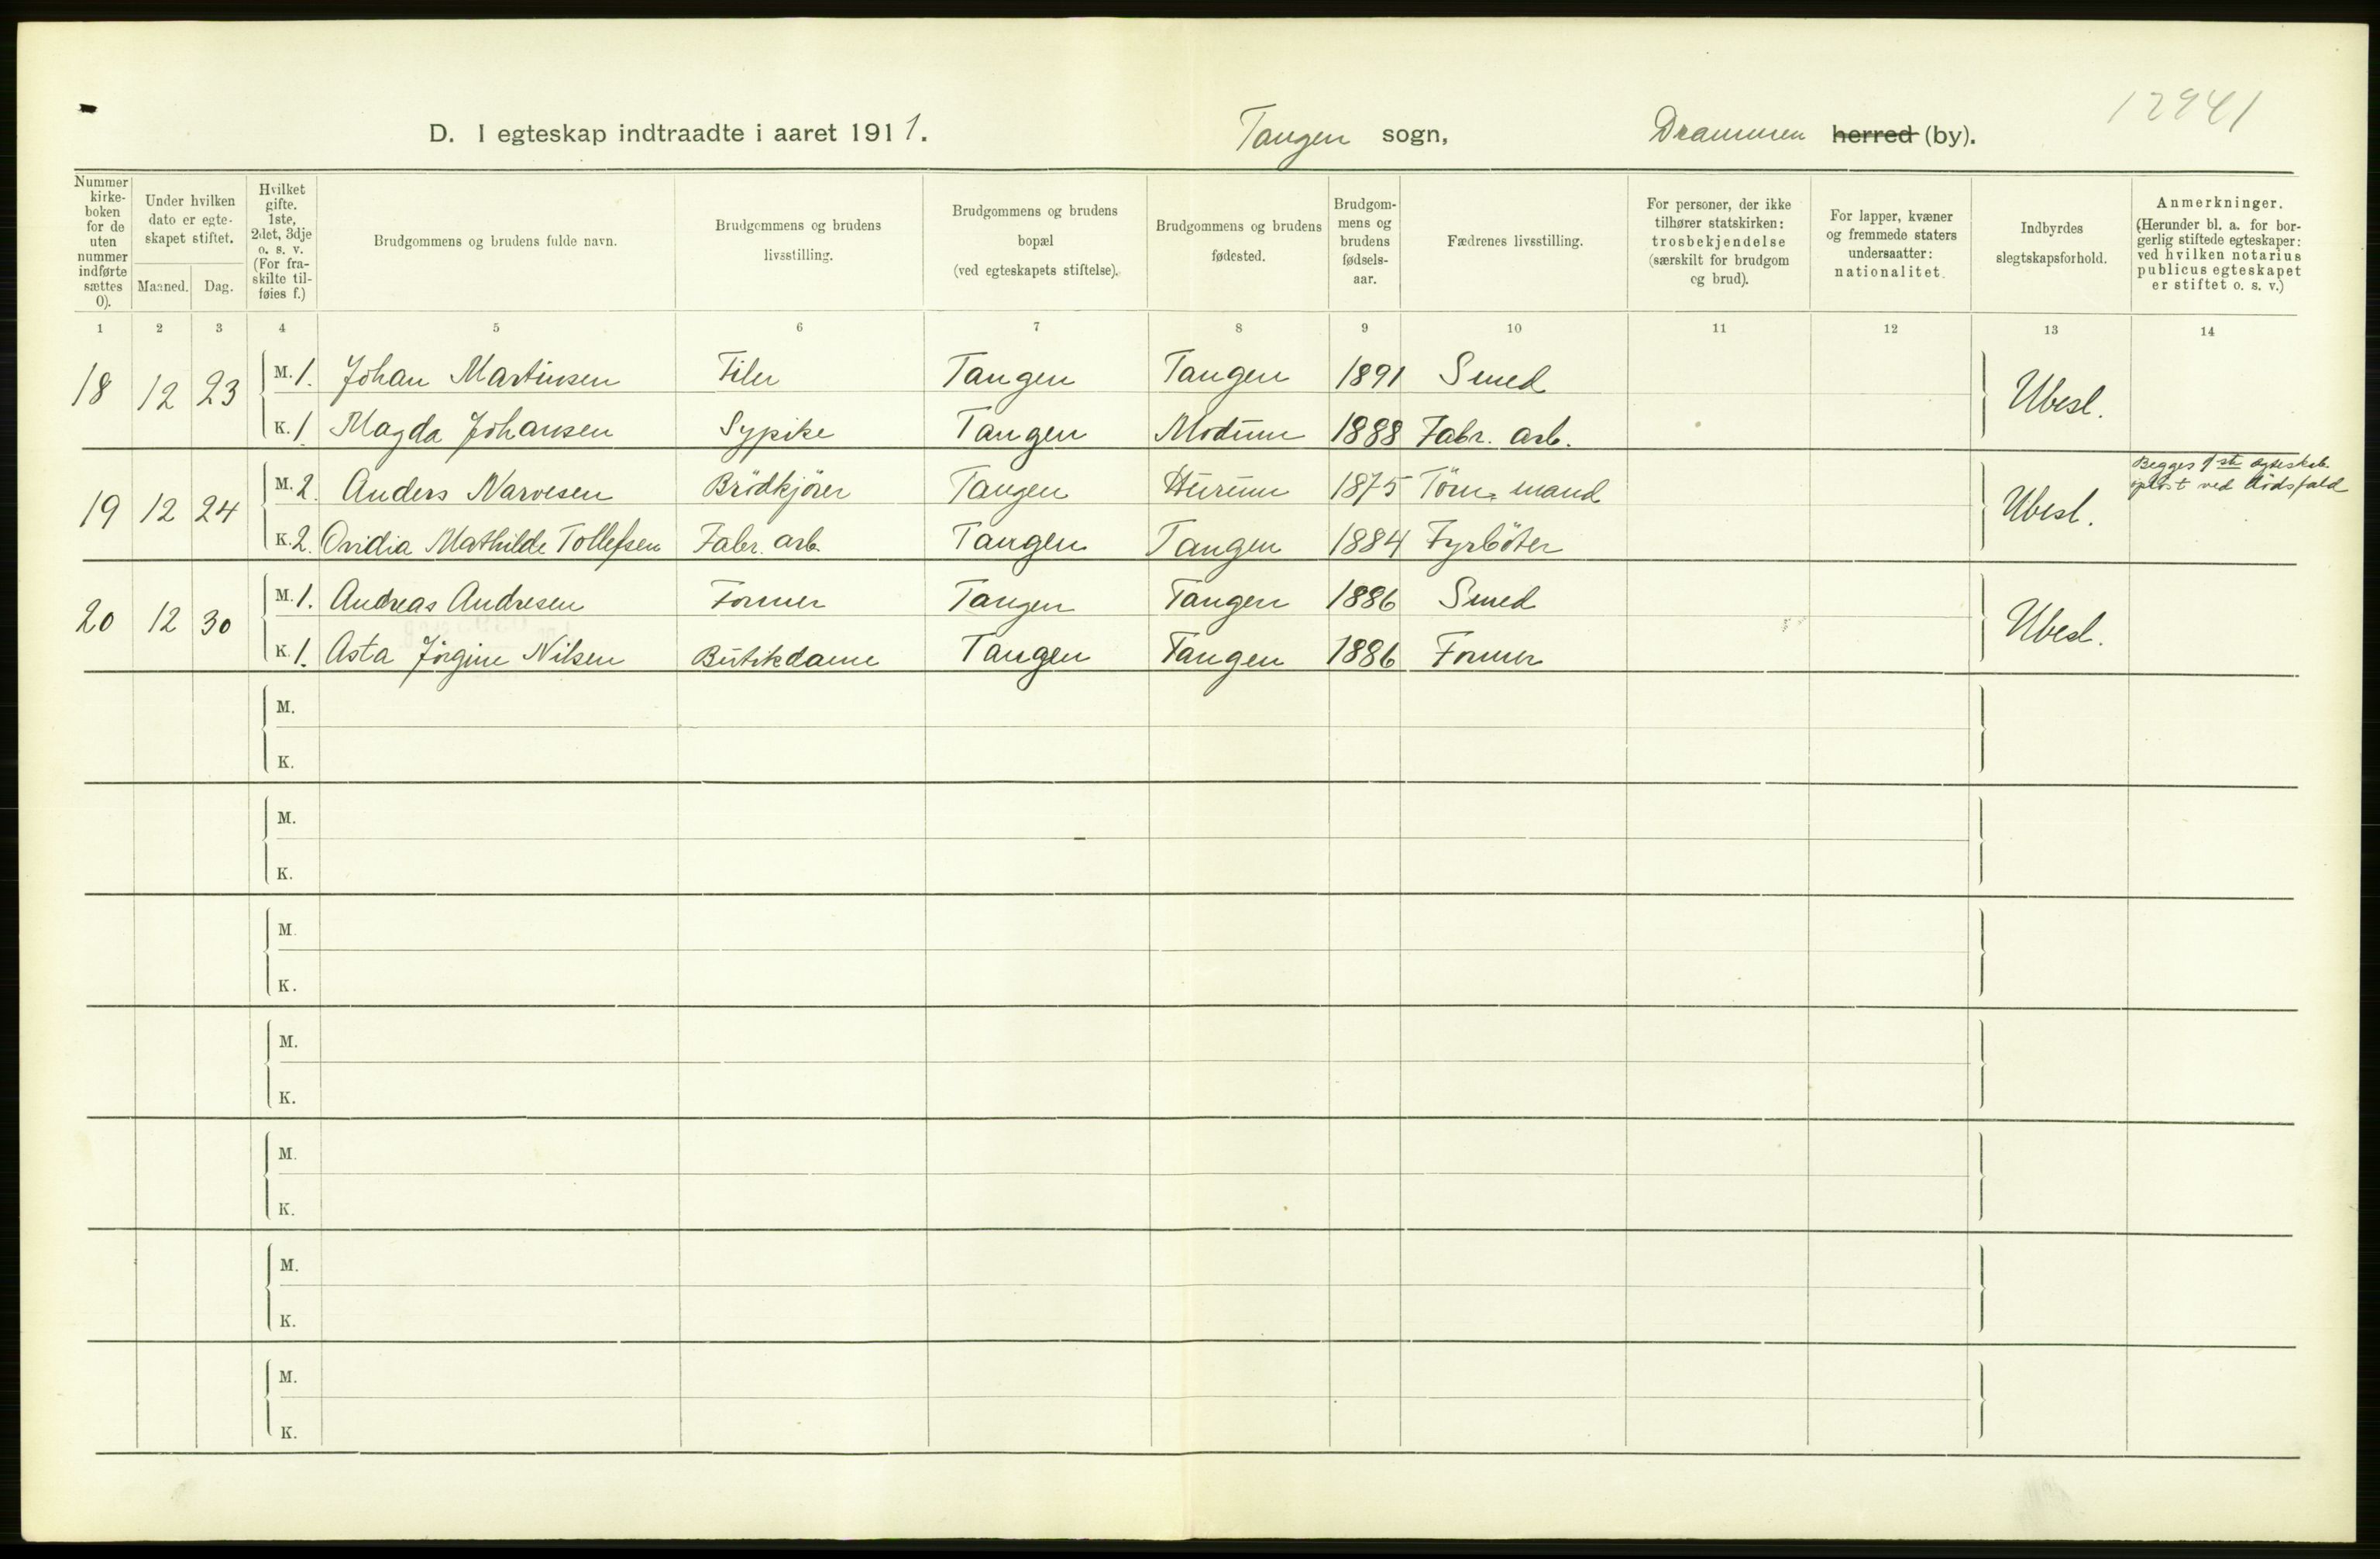 12941
D. I egteskap indtraadte i aaret 1911. Tangen sogn, Drammen herred (by).
Nummer kirke-boken for de uten nummer indførte sættes 0).
Under hvilken dato er egte-skapet stiftet.
Maaned. Dag.
Hvilket gifte. 1ste, 2det, 3dje o. s. v. (For fra-skilte til-føies f.)
Brudgommens og brudens fulde navn.
Brudgommens og brudens livsstilling.
Brudgommens og brudens bopæl (ved egteskapets stiftelse).
Brudgommens og brudens fødested.
Brudgom-mens og brudens fødsels-aar.
Fædrenes livsstilling.
For personer, der ikke tilhører statskirken: trosbekjendelse (særskilt for brudgom og brud).
For lapper, kvæner og fremmede staters undersaatter: nationalitet.
Indbyrdes slegtskapsforhold.
Anmerkninger. (Herunder bl. a. for bor-gerlig stiftede egteskaper: ved hvilken notarius publicus egteskapet er stiftet o. s. v.)
1 2 3 4 5 6 7 8 9 10 11 12 13 14
18 12 23 M. 1. Johan Martinsen Filer Tangen Tangen 1891 Smed Ubesl.
K. 1 Magda Johansen Sypike Tangen Modum 1888 Fabr. arb.
19 12 24 M. 2. Anders Narvesen Brödkjörer Tangen Hurum 1875 Töm. mand Ubesl. Begges 1ste egteskab. opløst ved dødsfald
K. 2. Ovidia Mathilde Tollefsen Fabr. arb. Tangen Tangen 1884 Fyrböter
20 12 30 M. 1. Andreas Andresen Former Tangen Tangen 1886 Smed Ubesl.
K. 1. Asta Jörgine Nilsen Butikdame Tangen Tangen 1886 Former
M.
K.
M.
K.
M.
K.
M.
K.
M.
K.
M.
K.
M.
K.